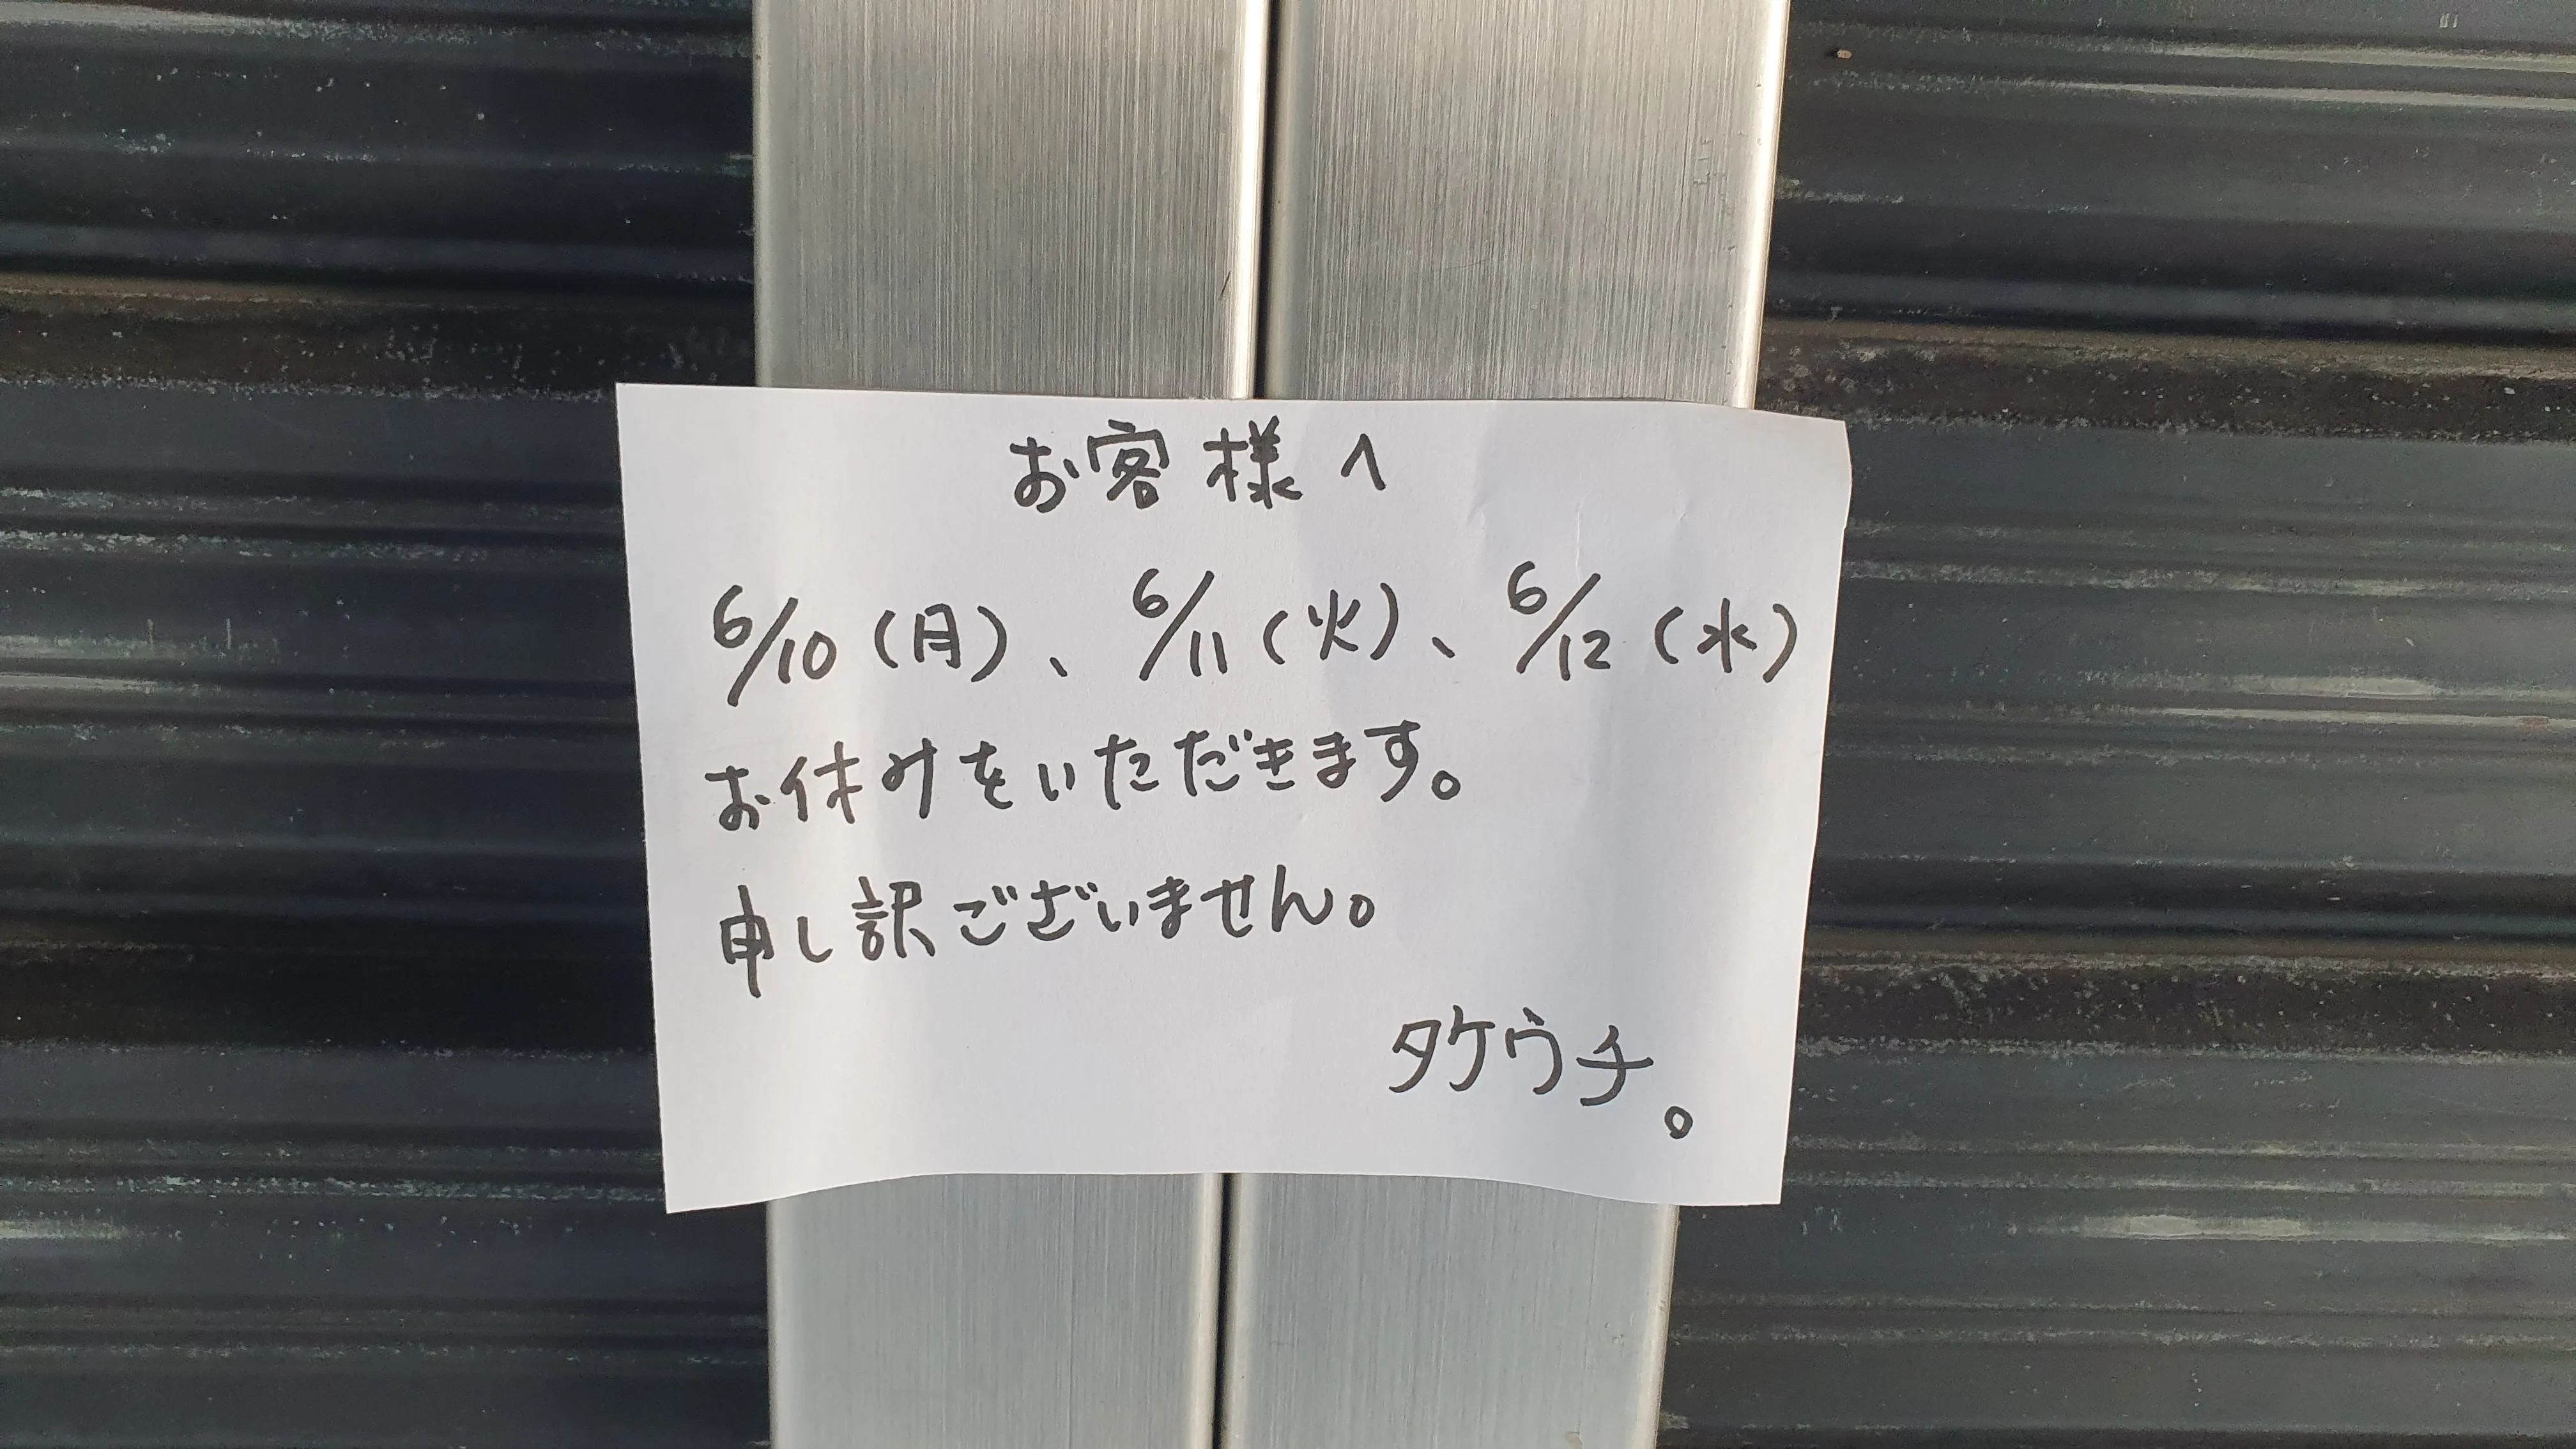 お客様へ
6/10(月)、6/11(火)、6/12(水)
お休みをいただきます。
申し訳ございません。
タケウチ。